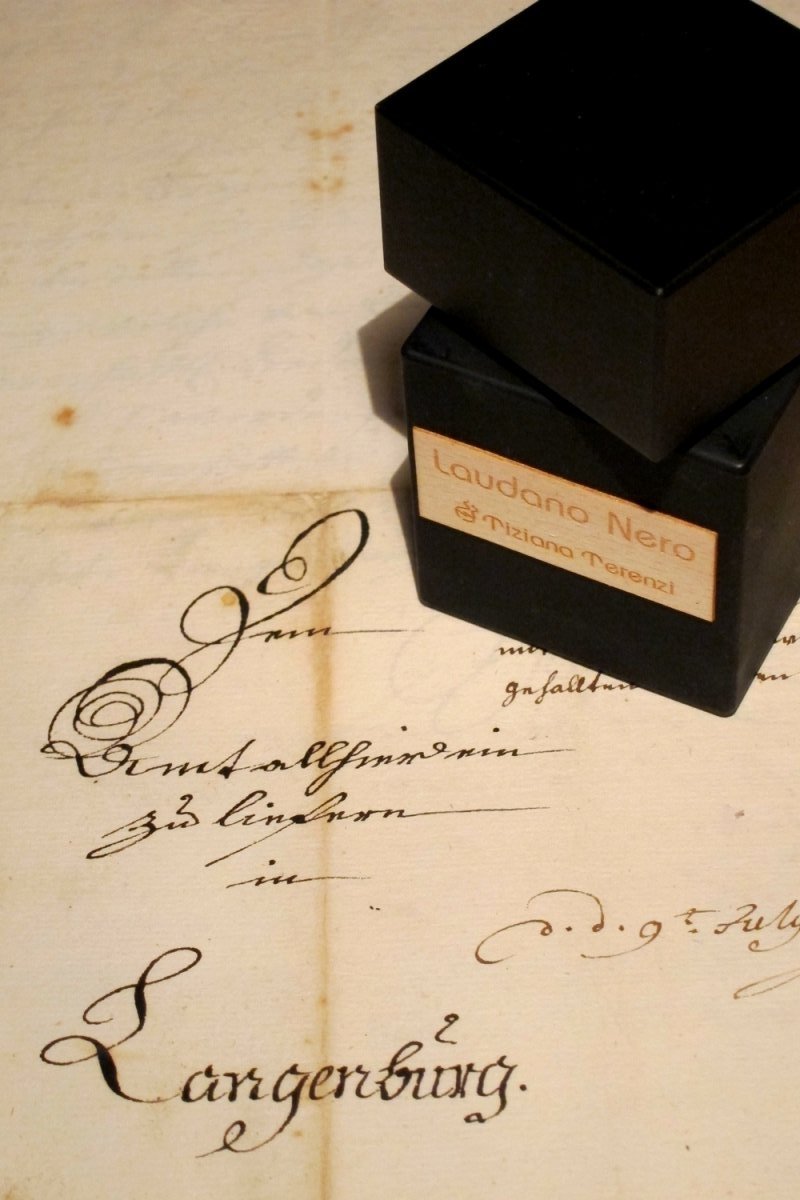 Laudano Nero
Tiziana Terenzi
Dem
gehallten
Amt allhier ein
zu liefern
in
d. d. 9t. July
Langenburg.